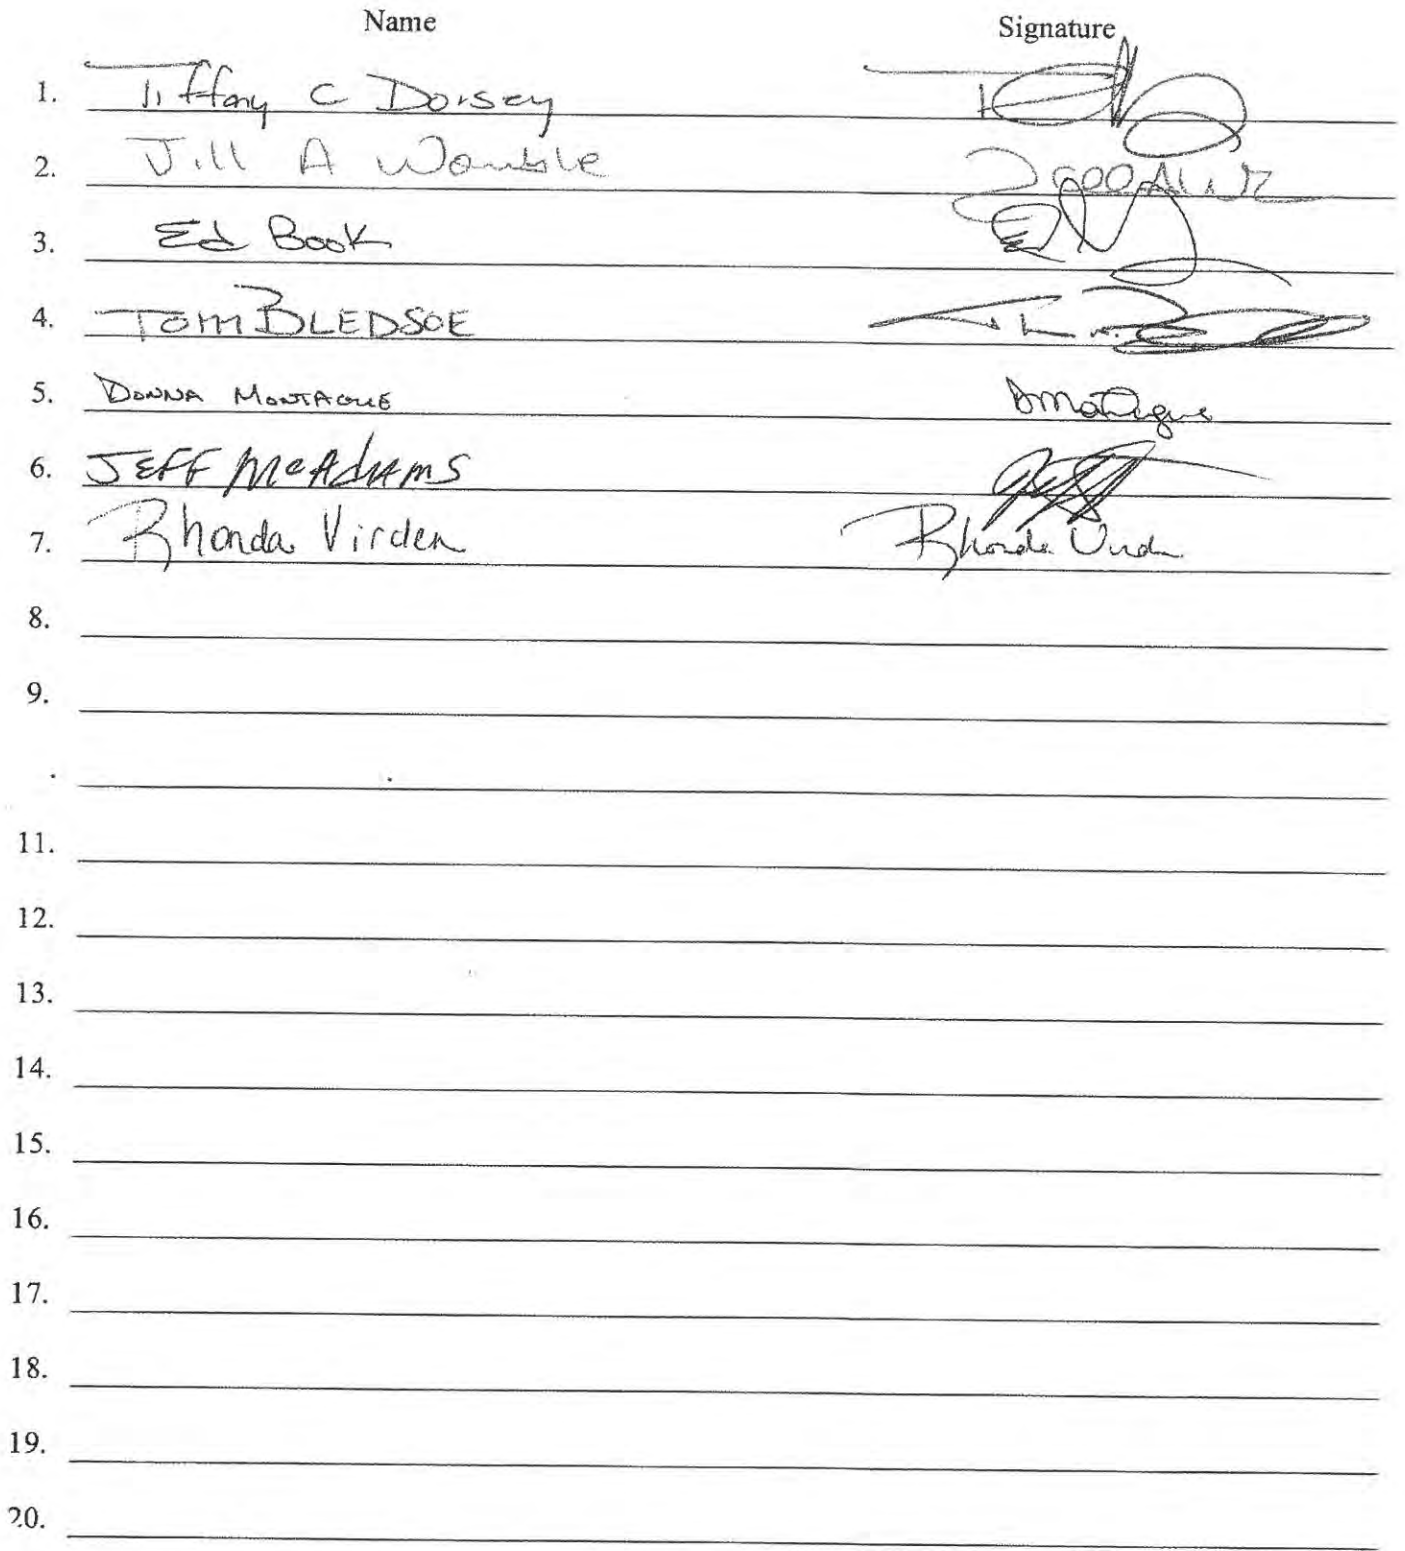 Name Signature
1. Tiffany C Dorsey
2. Jill A Womble
3. Ed Book
4. Tom BLEDSOE
5. DONNA MONTAGUE DMontague
6. JEFF McAdAMS
7. Rhonda Virden Rhonda Virden
8.
9.
.
11.
12.
13.
14.
15.
16.
17.
18.
19.
20.